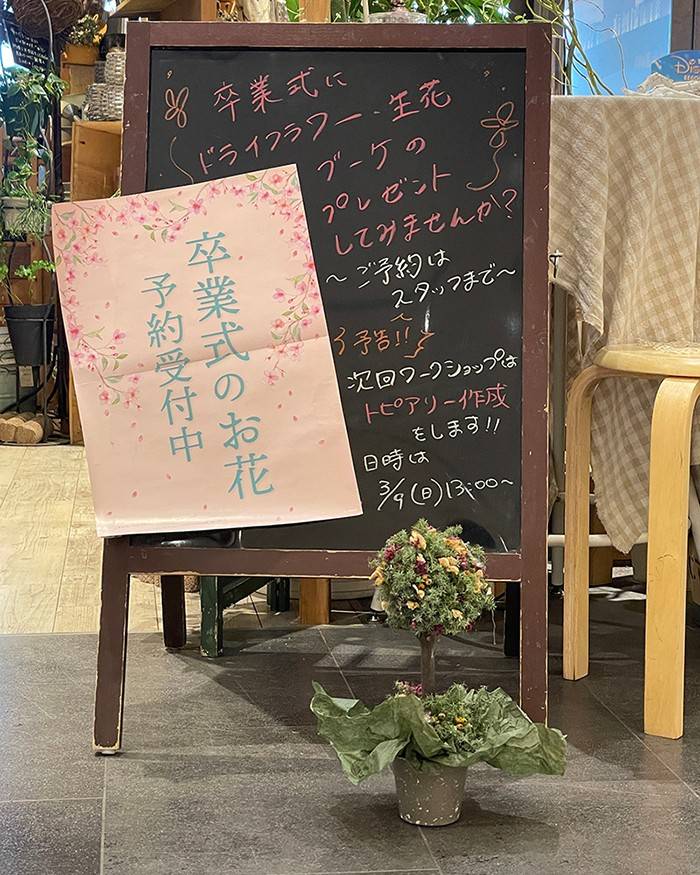 卒業式に
ドライフラワー、生花
ブーケの
プレゼント
してみませんか?
~ご予約は
スタッフまで~
予告!!
次回ワークショップは
トピアリー作成
をします!!
日時は
3/9(日)13:00~
卒業式のお花
予約受付中